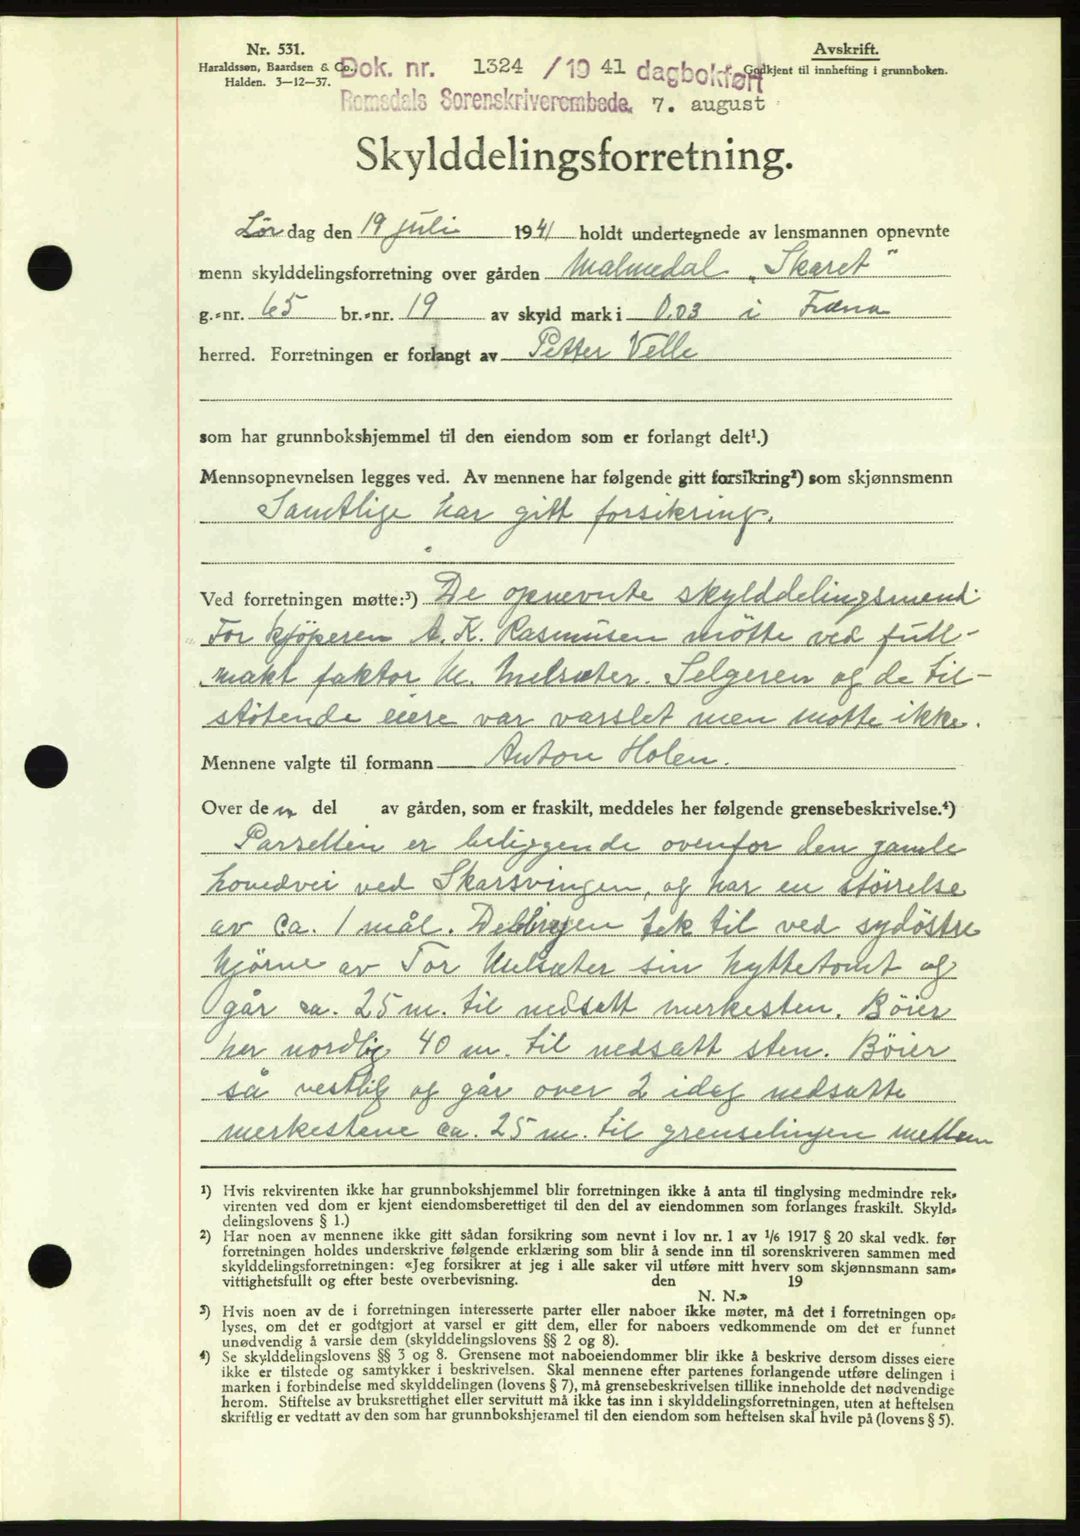 Nr. 531.
Haraldssøn, Baardsen & Co.,
Halden. 3-12-37.
Avskrift.
Godkjent til innhefting i grunnboken.
Dok. nr. 1324 /19 41 dagbokført
Romsdals Sorenskriverembede. 7. august
Skylddelingsforretning.
Lør dag den 19 juli 1941 holdt undertegnede av lensmannen opnevnte
menn skylddelingsforretning over gården Malmedal "Skaret"
g.-nr. 65 br.-nr. 19 av skyld mark i 0.03 i Fræna
herred. Forretningen er forlangt av Petter Velle
som har grunnbokshjemmel til den eiendom som er forlangt delt¹.)
Mennsopnevnelsen legges ved. Av mennene har følgende gitt forsikring²) som skjønnsmenn
Samtlige har gitt forsikring.
Ved forretningen møtte:³) De opnevnte skylddelingsmenn.
For kjöperen A. K. Rasmusen møtte ved full-
makt faktor M. Melsæter. Selgeren og de til-
støtende eiere var varslet men møtte ikke.
Mennene valgte til formann Anton Holen.
Over den del av gården, som er fraskilt, meddeles her følgende grensebeskrivelse.⁴)
Parsellen er beliggende ovenfor den gamle
hovedvei ved Skarsvingen, og har en størrelse
av ca. 1 mål. Delelinjen tek til ved sydöstre
hjörne av Tor Melsæter sin hyttetomt og
går ca. 25 m. til nedsatt merkesten. Böier
her nordlig 40 m. til nedsatt sten. Böier
så vestlig og går over 2 idag nedsatte
merkestene ca. 25 m. til grenselinjen mellem
¹) Hvis rekvirenten ikke har grunnbokshjemmel blir forretningen ikke å anta til tinglysing medmindre rek-
virenten ved dom er kjent eiendomsberettiget til den del av eiendommen som forlanges fraskilt. Skyld-
delingslovens § 1.)
²) Har noen av mennene ikke gitt sådan forsikring som nevnt i lov nr. 1 av 1/6 1917 § 20 skal vedk. før
forretningen holdes underskrive følgende erklæring som blir å sende inn til sorenskriveren sammen med
skylddelingsforretningen: «Jeg forsikrer at jeg i alle saker vil utføre mitt hverv som skjønnsmann sam-
vittighetsfullt og efter beste overbevisning. den 19
N. N.»
³) Hvis noen av de i forretningen interesserte parter eller naboer ikke møter, må det i forretningen op-
lyses, om det er godtgjort at varsel er gitt dem, eller for naboers vedkommende om det er funnet
unødvendig å varsle dem (skylddelingslovens §§ 2 og 8).
⁴) Se skylddelingslovens §§ 3 og 8. Grensene mot naboeiendommer blir ikke å beskrive dersom disses eiere
ikke er tilstede og samtykker i beskrivelsen. Skal mennene efter partenes forlangende utføre delingen i
marken i forbindelse med skylddelingen (lovens § 7), må grensebeskrivelsen tillike inneholde det nødvendige
herom. Stiftelse av bruksrettighet eller servitutt må ikke tas inn i skylddelingsforretningen, uten at heftelsen
skriftlig er vedtatt av den som har grunnbokshjemmel til den eiendom som heftelsen skal hvile på (lovens § 5).